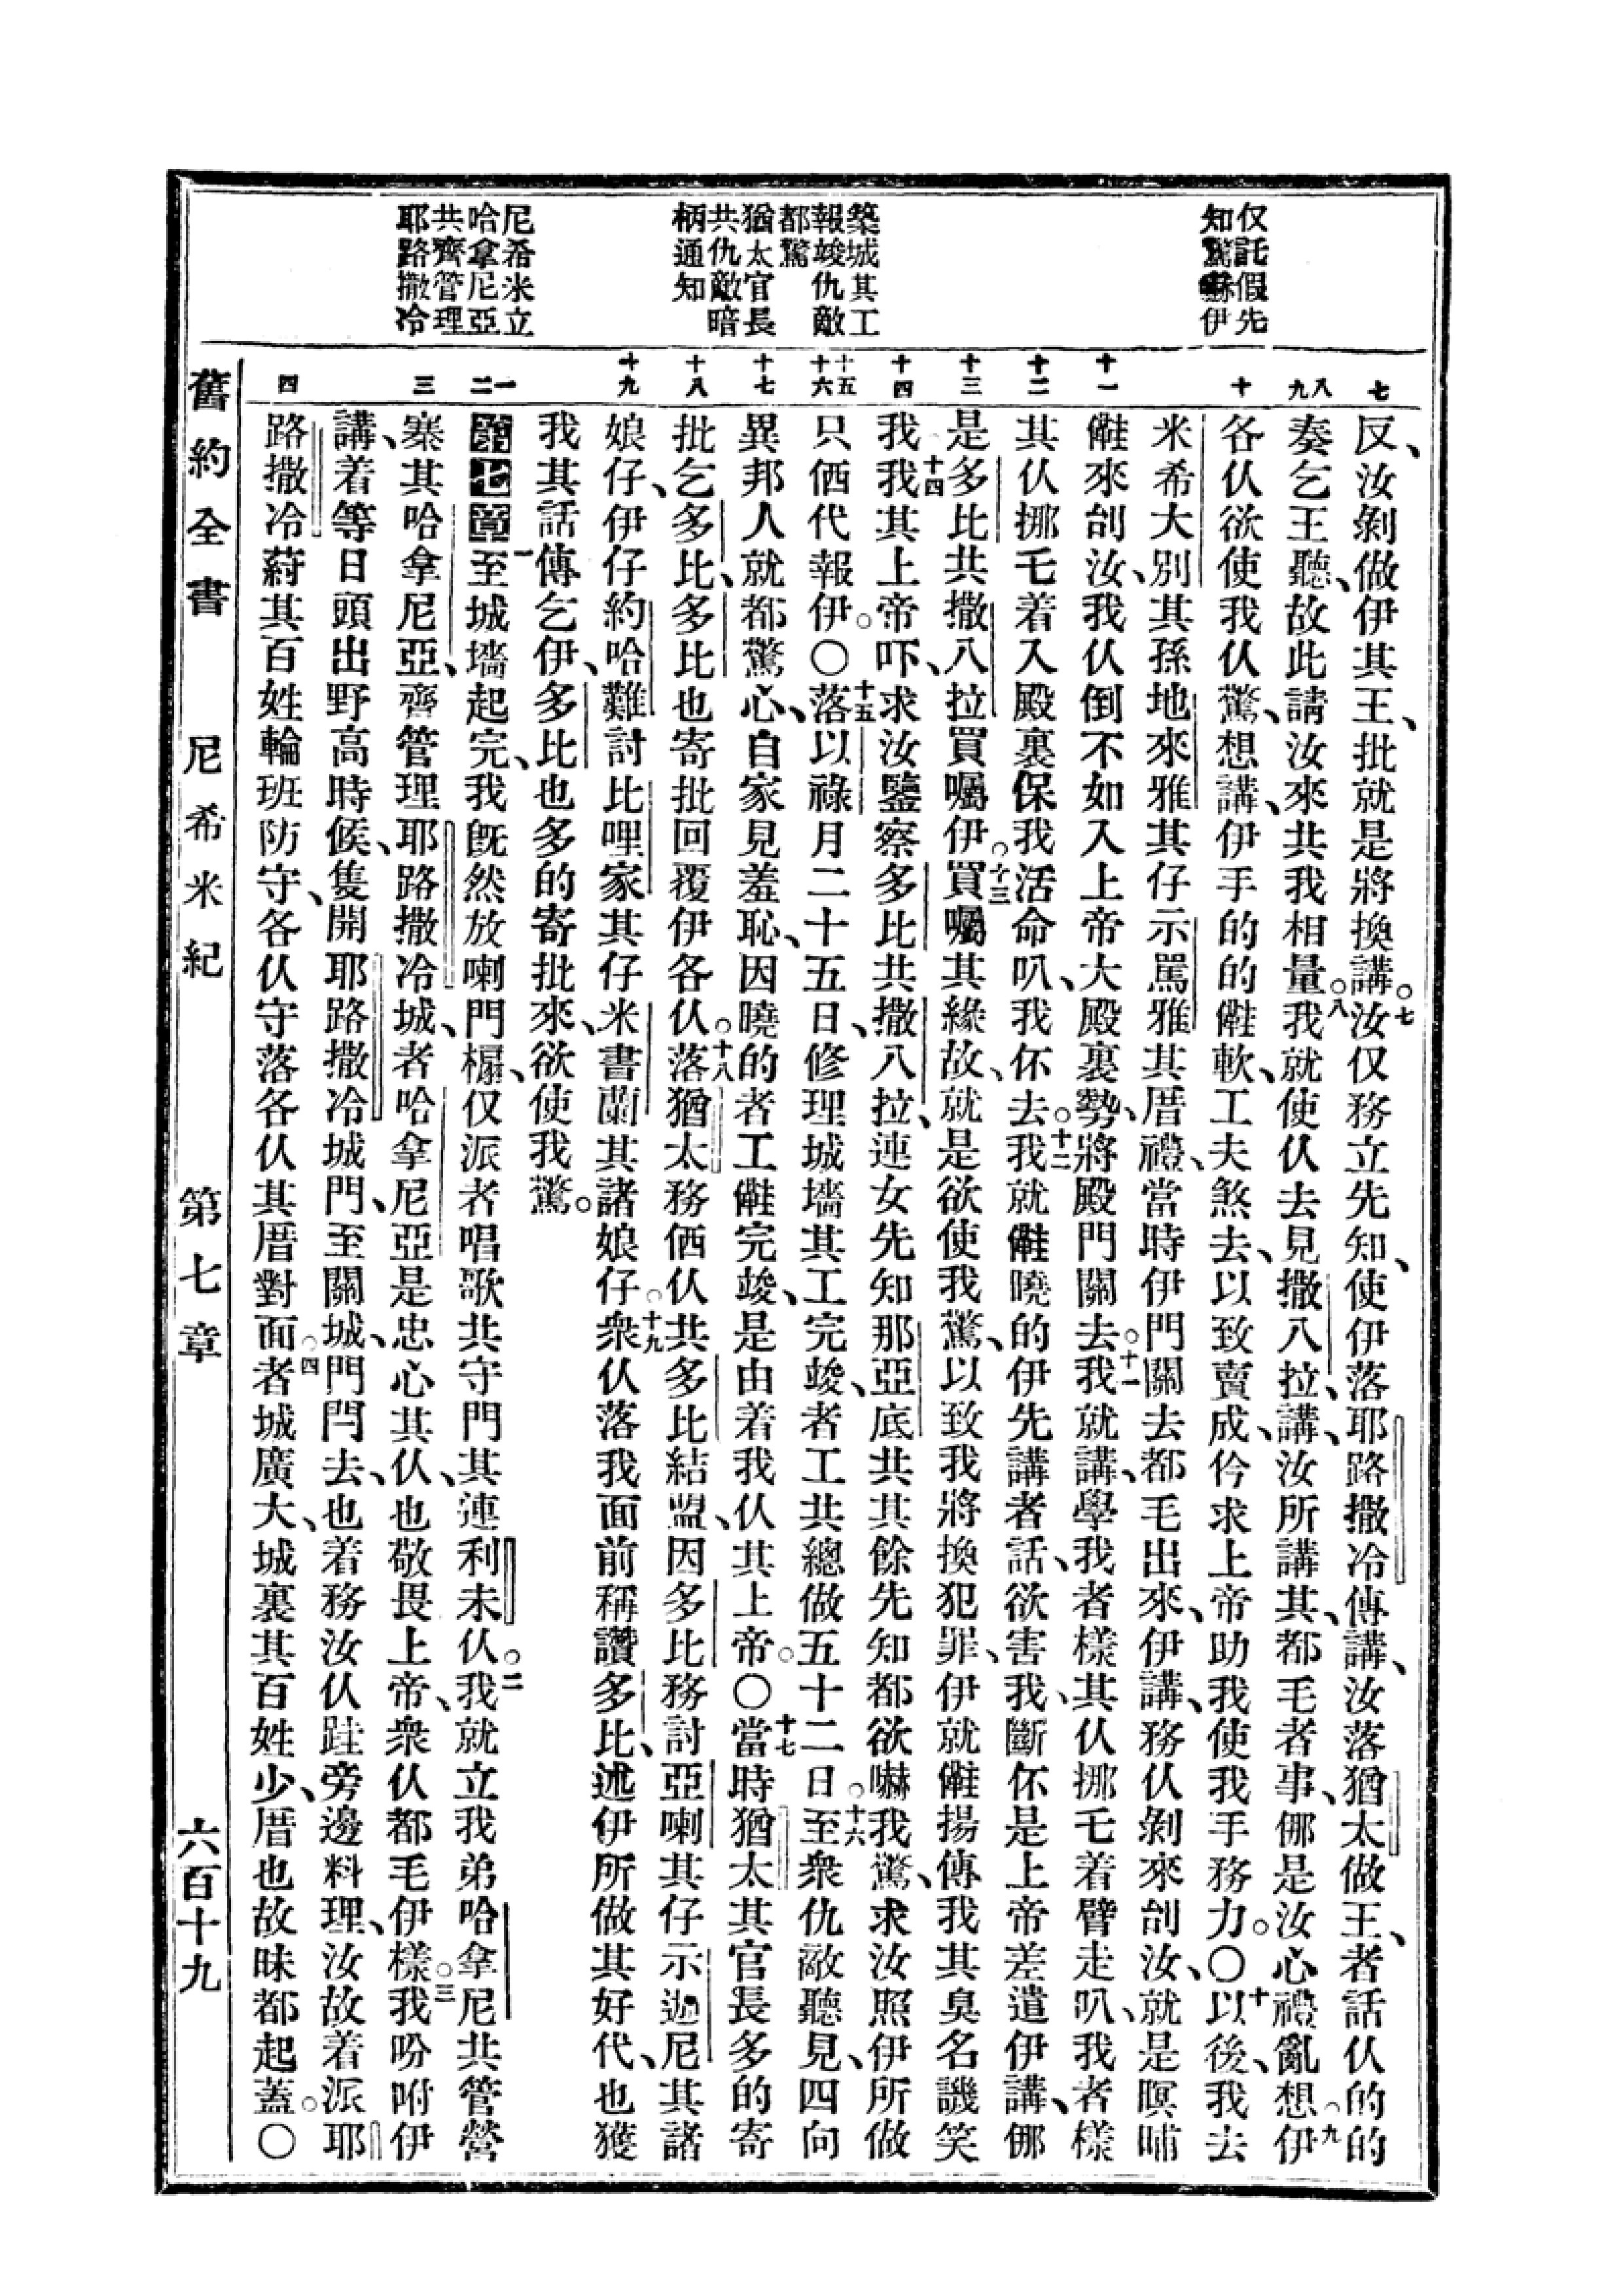 仅託假先
知驚嚇伊
築城其工
報竣仇敵
都驚
猶太官長
共仇敵暗
柄通知
尼希米立
哈拿尼亞
共齊管理
耶路撒冷
七
八
九
十
十一
十二
十三
十四
十五
十六
十七
十八
十九
一
二
三
四
反、汝剝做伊其王、批就是將換講。七汝仅務立先知、使伊落耶路撒冷傳講、汝落猶太做王、者話仈的的
奏乞王聽、故此請汝來共我相量。八我就使仈去見撒八拉、講、汝所講其、都毛者事、㑚是汝心禮亂想。九伊
各仈欲使我仈驚、想講、伊手的的軟、工夫煞去、以致賣成、仱求上帝助我使我手務力。〇十以後、我去
米希大別其孫地來雅其仔示罵雅其厝禮、當時伊門關去都毛出來、伊講、務仈剝來刣汝、就是暝晡
來刣汝、我仈倒不如入上帝大殿裏勢、將殿門關去。十一我就講、學我者樣其仈挪乇着臂走叭、我者樣
其仈挪乇着入殿裏保我活命叭、我伓去。十二我就曉的伊先講者話、欲害我、斷伓是上帝差遣伊講、㑚
是多比共撒八拉買囑伊。十三買囑其緣故、就是欲使我驚、以致我將換犯罪、伊就揚傳我其臭名譏笑
我。十四我其上帝吓、求汝鑒察多比共撒八拉、連女先知那亞底共其餘先知都欲嚇我驚、求汝照伊所做
只価代報伊。〇十五落以祿月二十五日、修理城墻其工完竣、者工共總做五十二日。十六至衆仇敵聽見、四向
異邦人就都驚心、自家見羞恥、因曉的者工完竣、是由着我仈其上帝。〇十七當時猶太其官長多的寄
批乞多比、多比也寄批回覆伊各仈。十八落猶太務価仈共多比結盟、因多比務討亞喇其仔示迦尼其諸
娘仔、伊仔約哈難討比哩家其仔米書蘭其諸娘仔。十九衆仈落我面前稱讚多比、述伊所做其好代、也獲
我其話傳乞伊、多比也多的寄批來、欲使我驚。
第七章一至城墻起完、我旣然放喇門槅、仅派者唱歌共守門其連利未仈。二我就立我弟哈拿尼共管營
寨其哈拿尼亞、齊管理耶路撒冷城、者哈拿尼亞是忠心其仈、也敬畏上帝、衆仈都毛伊樣。三我吩咐伊
講、着等日頭出野高時候、隻開耶路撒冷城門、至關城、門閂去、也着務汝仈跬旁邊料理、汝故着派耶
路撒冷葑其百姓輪班防守、各仈守落各仈其厝對面。四者城廣大、城裏其百姓少、厝也故昧都起蓋。〇
舊約全書　尼希米紀　第七章　六百十九